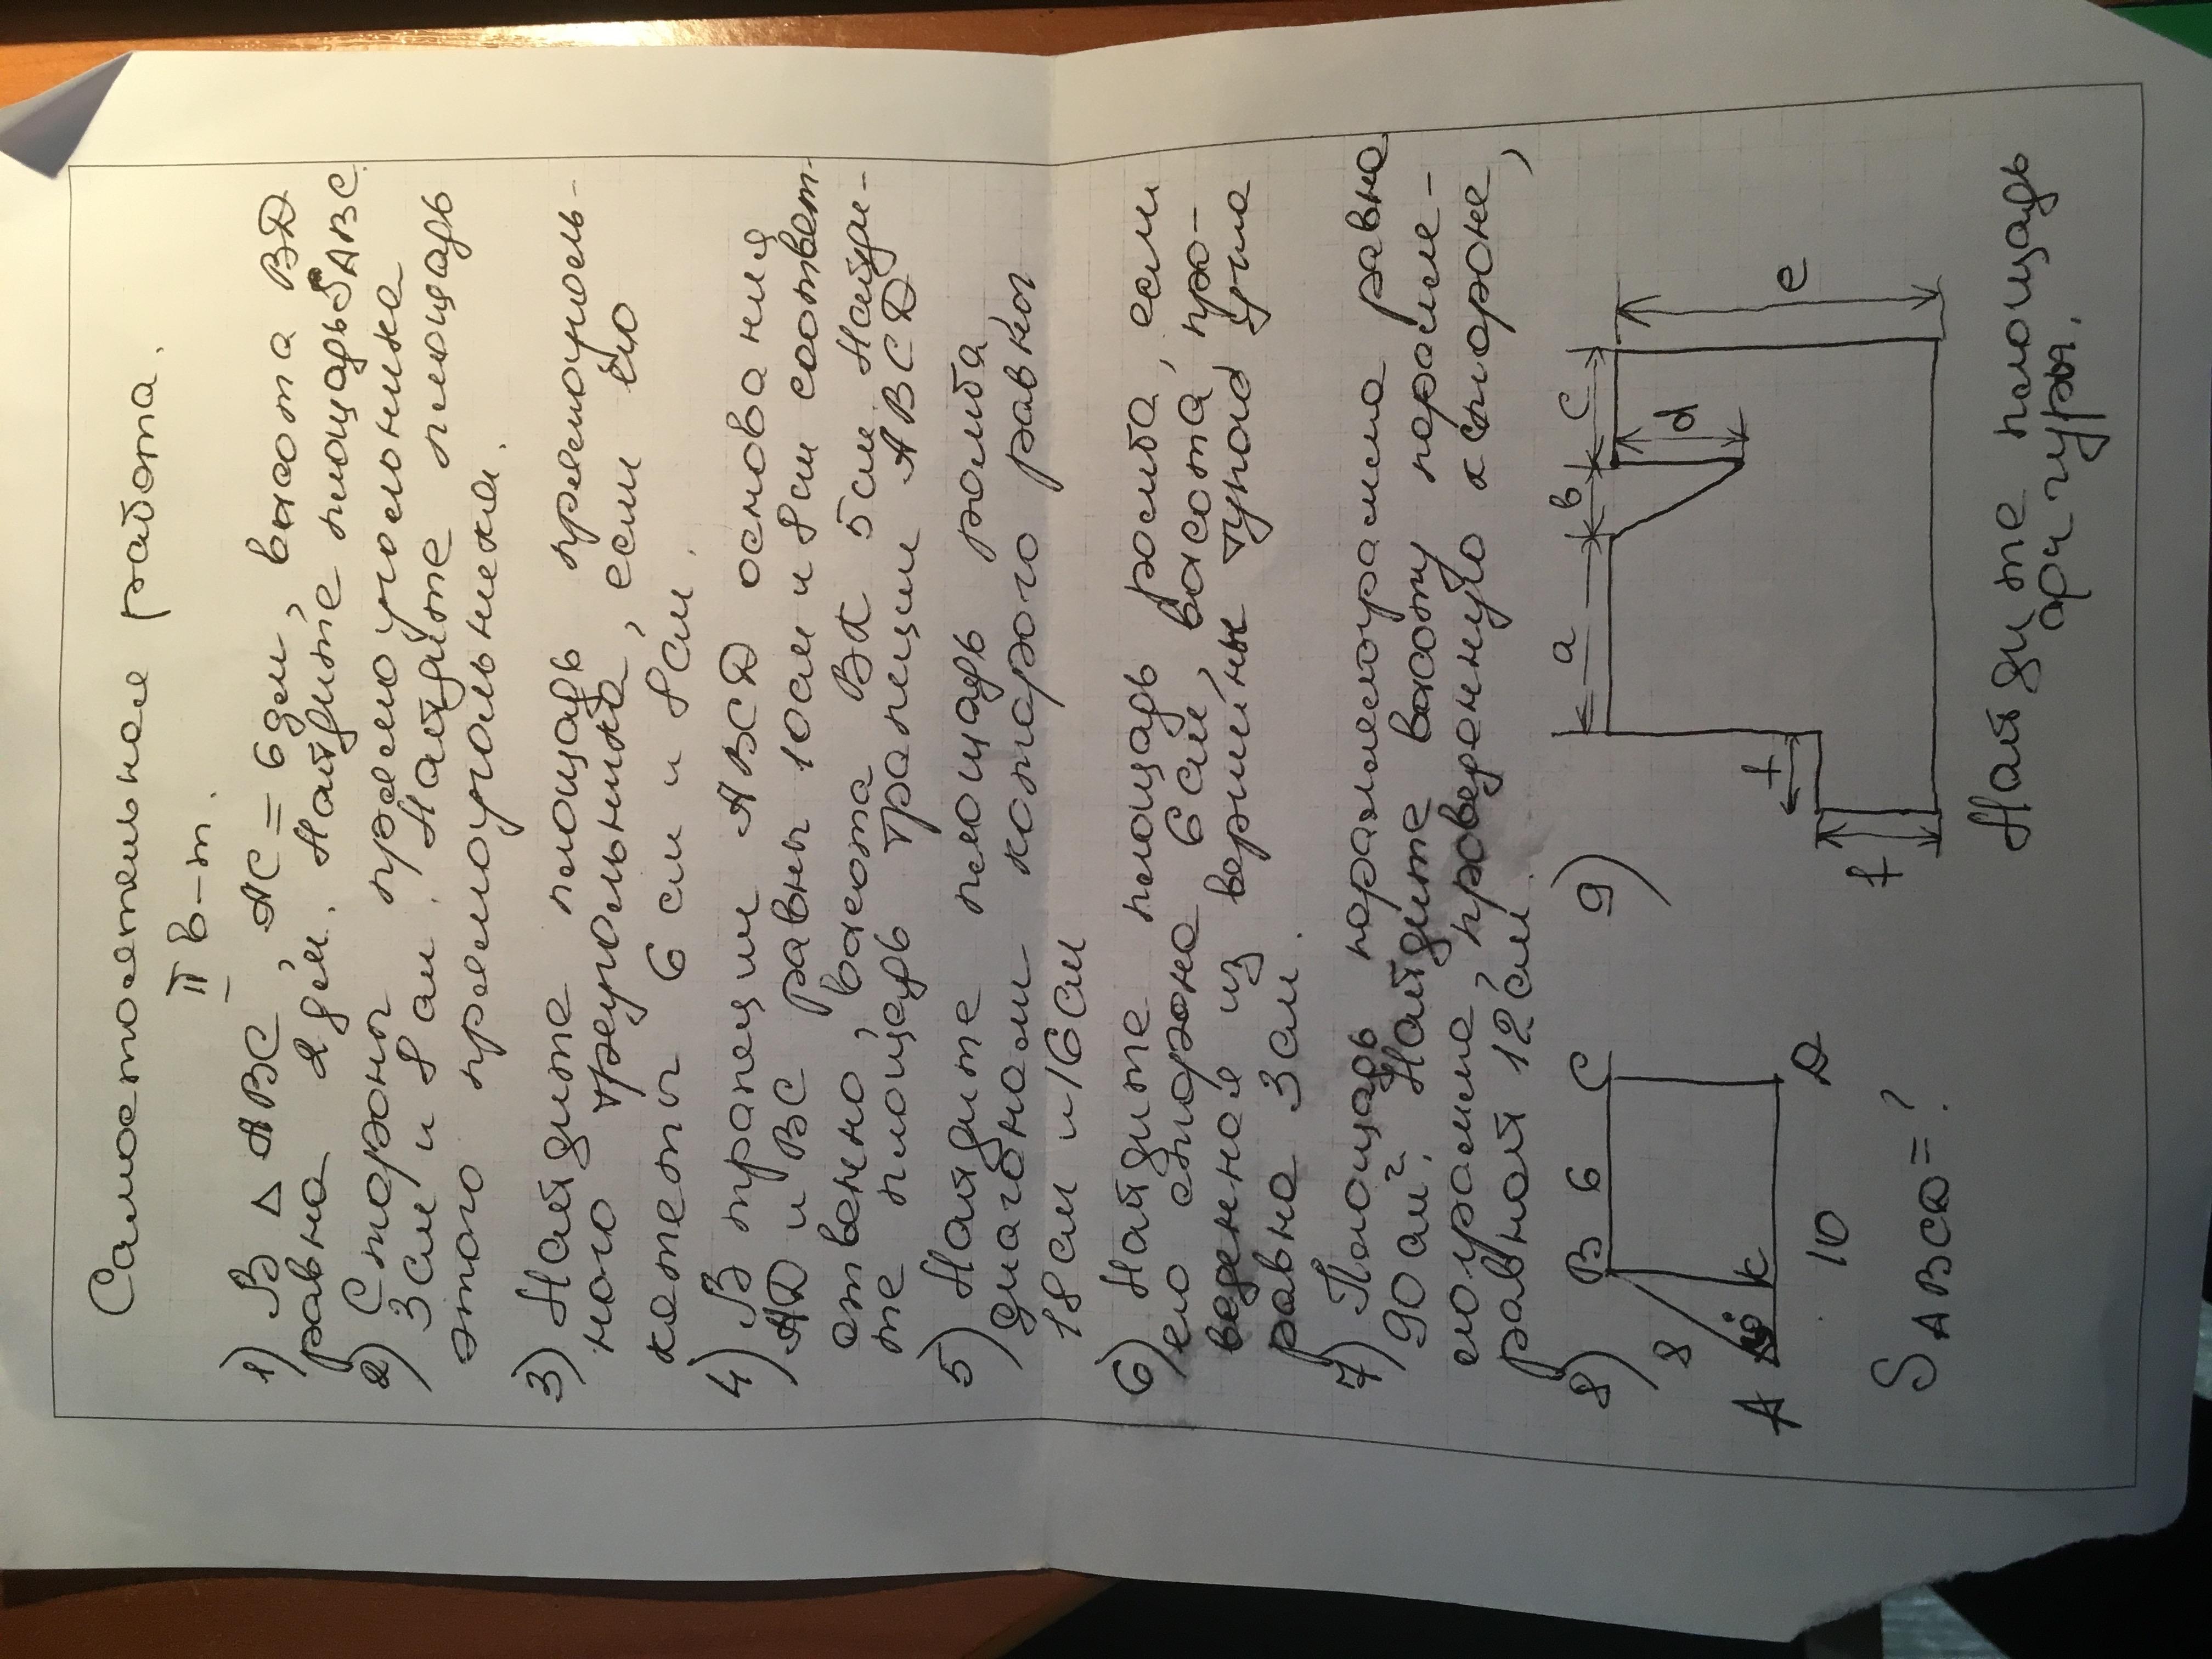 Самостоятельная работа.
II в-т.
1) В △ ABC, AC = 6 дм, высота ВД
равна 2 дм. Найдите площадь S ABC.
2) Стороны прямоугольника
3 см и 8 см. Найдите площадь
этого прямоугольника.
3) Найдите площадь прямоуголь-
ного треугольника, если его
катеты 6 см и 8 см.
4) В трапеции АВСД основания
АД и ВС равны 10 см и 8 см соответ-
ственно, высота ВК 5 см. Найди-
те площадь трапеции АВСД
5) Найдите площадь ромба
диагонали которого равны
18 см и 16 см
6) Найдите площадь ромба, если
его сторона 6 см, высота, про-
веденная из вершины тупого угла
равна 3 см.
7) Площадь параллелограмма равна
90 см². Найдите высоту паралле-
лограмма, проведенную к стороне,
равной 12 см.
8) B 6 C
8
A K D
10
S ABCD = ?
9) a b c
d e
f f
Найдите площадь
фигуры.